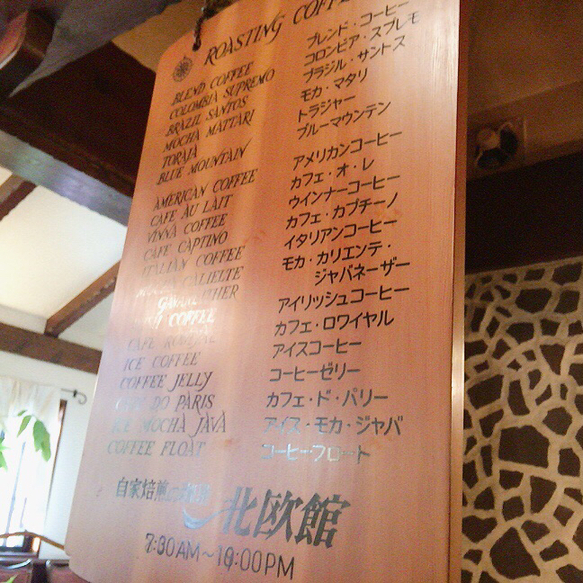 ROASTING COFFEE
BLEND COFFEE ブレンド・コーヒー
COLOMBIA SUPREMO コロンビア・スプレモ
BRAZIL SANTOS ブラジル・サントス
MOCHA MATTARI モカ・マタリ
TORAJA トラジャー
BLUE MOUNTAIN ブルーマウンテン
AMERICAN COFFEE アメリカンコーヒー
CAFE AU LAIT カフェ・オ・レ
VINNA COFFEE ウインナーコーヒー
CAFE CAPTINO カフェ・カプチーノ
ITALIAN COFFEE イタリアンコーヒー
CALIELTE モカ・カリエンテ・
ジャバネーザー
COFFEE アイリッシュコーヒー
CAFE ROYAL カフェ・ロワイヤル
ICE COFFEE アイスコーヒー
COFFEE JELLY コーヒーゼリー
DO PARIS カフェ・ド・パリー
ICE MOCHA JAVA アイス・モカ・ジャバ
COFFEE FLOAT コーヒーフロート
自家焙煎の珈琲
北欧館
7:30AM～10:00PM